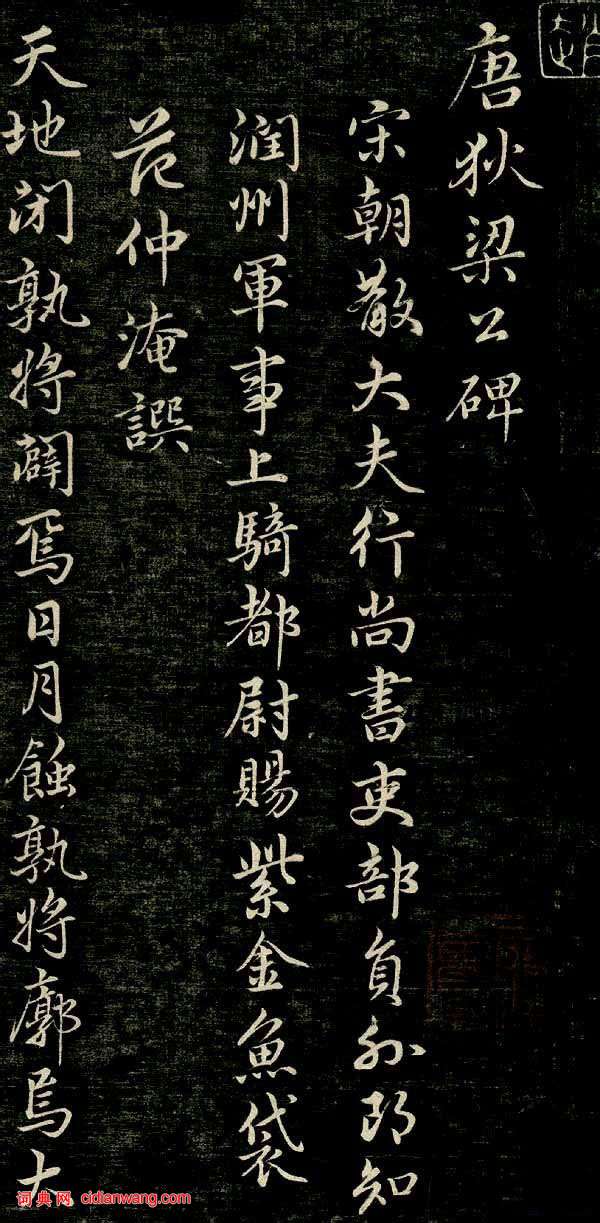 唐狄梁公碑
宋朝散大夫行尚書吏部員外郎知
潤州軍事上騎都尉賜紫金魚袋
范仲淹譔
天地閉孰將闢焉日月蝕孰將廓焉大
词典网 cidianwang.com